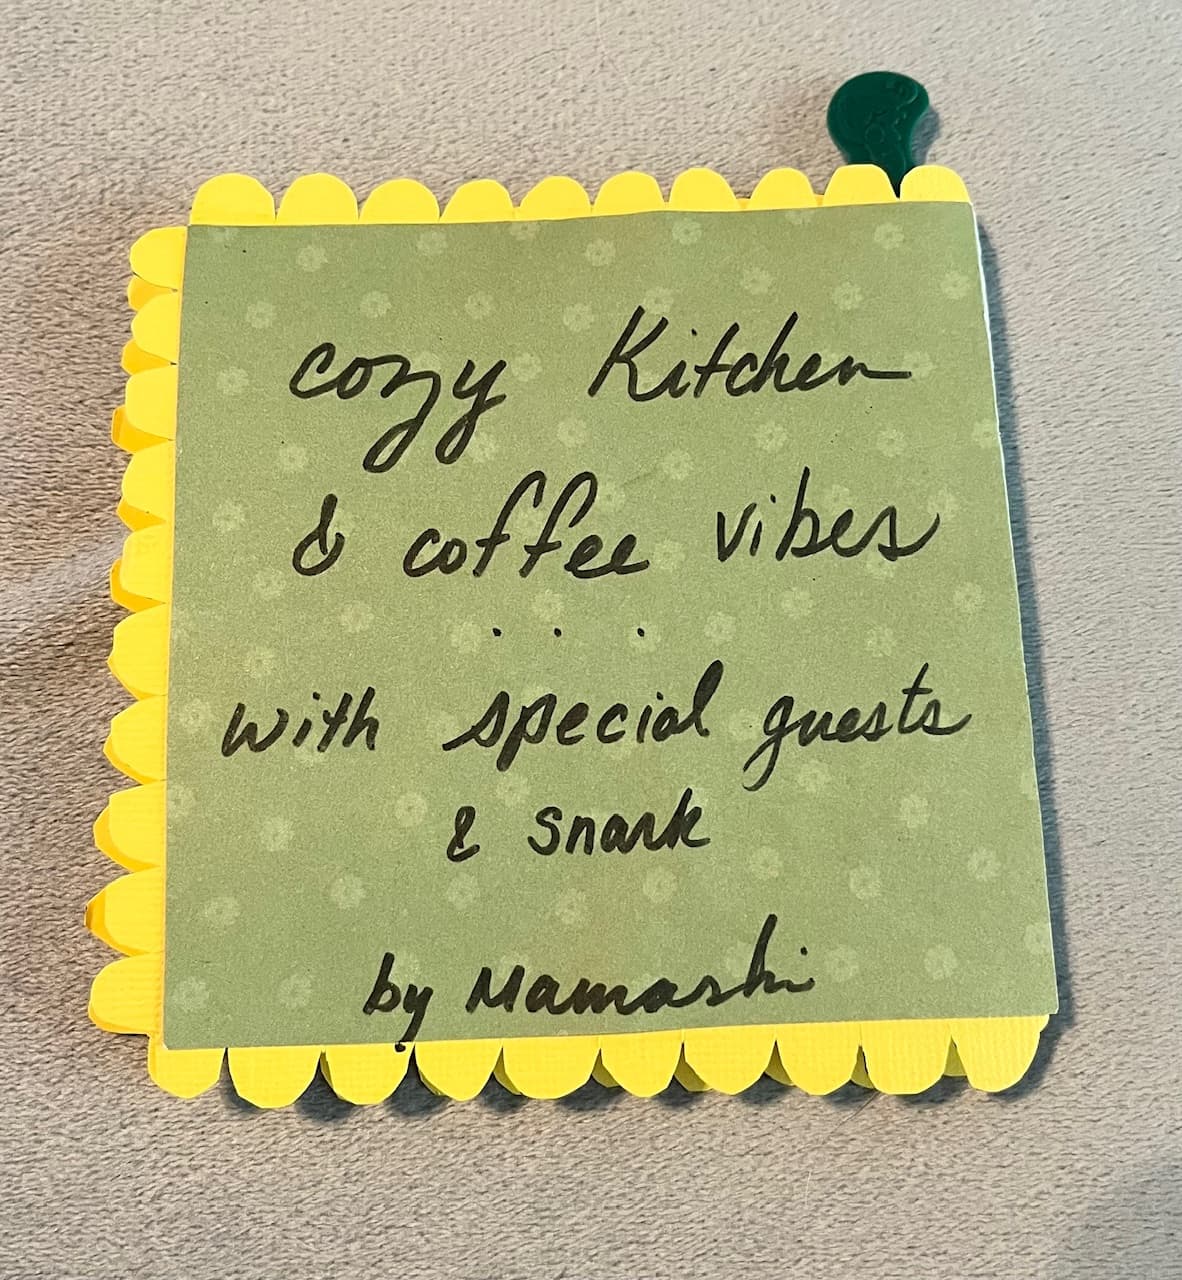 cozy Kitchen
& coffee vibes
. . .
with special guests
& snark
by Mamashi